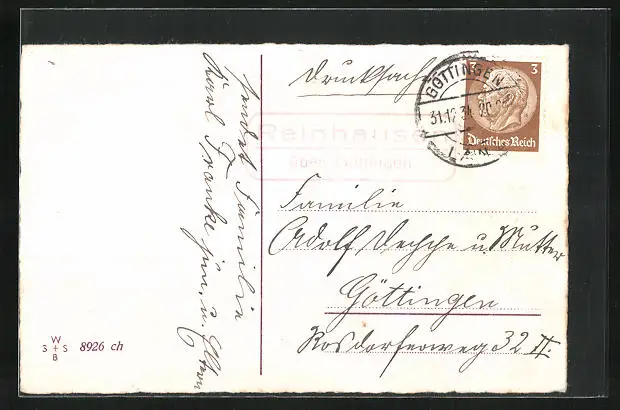 Drucksache
GÖTTINGEN
31.12.34. 20
3 3
Deutsches Reich
Reinhausen
über Göttingen
Familie
Adolf Deppe u. Mutter
Göttingen
Rosdorferweg 32 II.
sendet Familie
Karl Franke jun. u. Eltern
W
3 + S
B
8926 ch